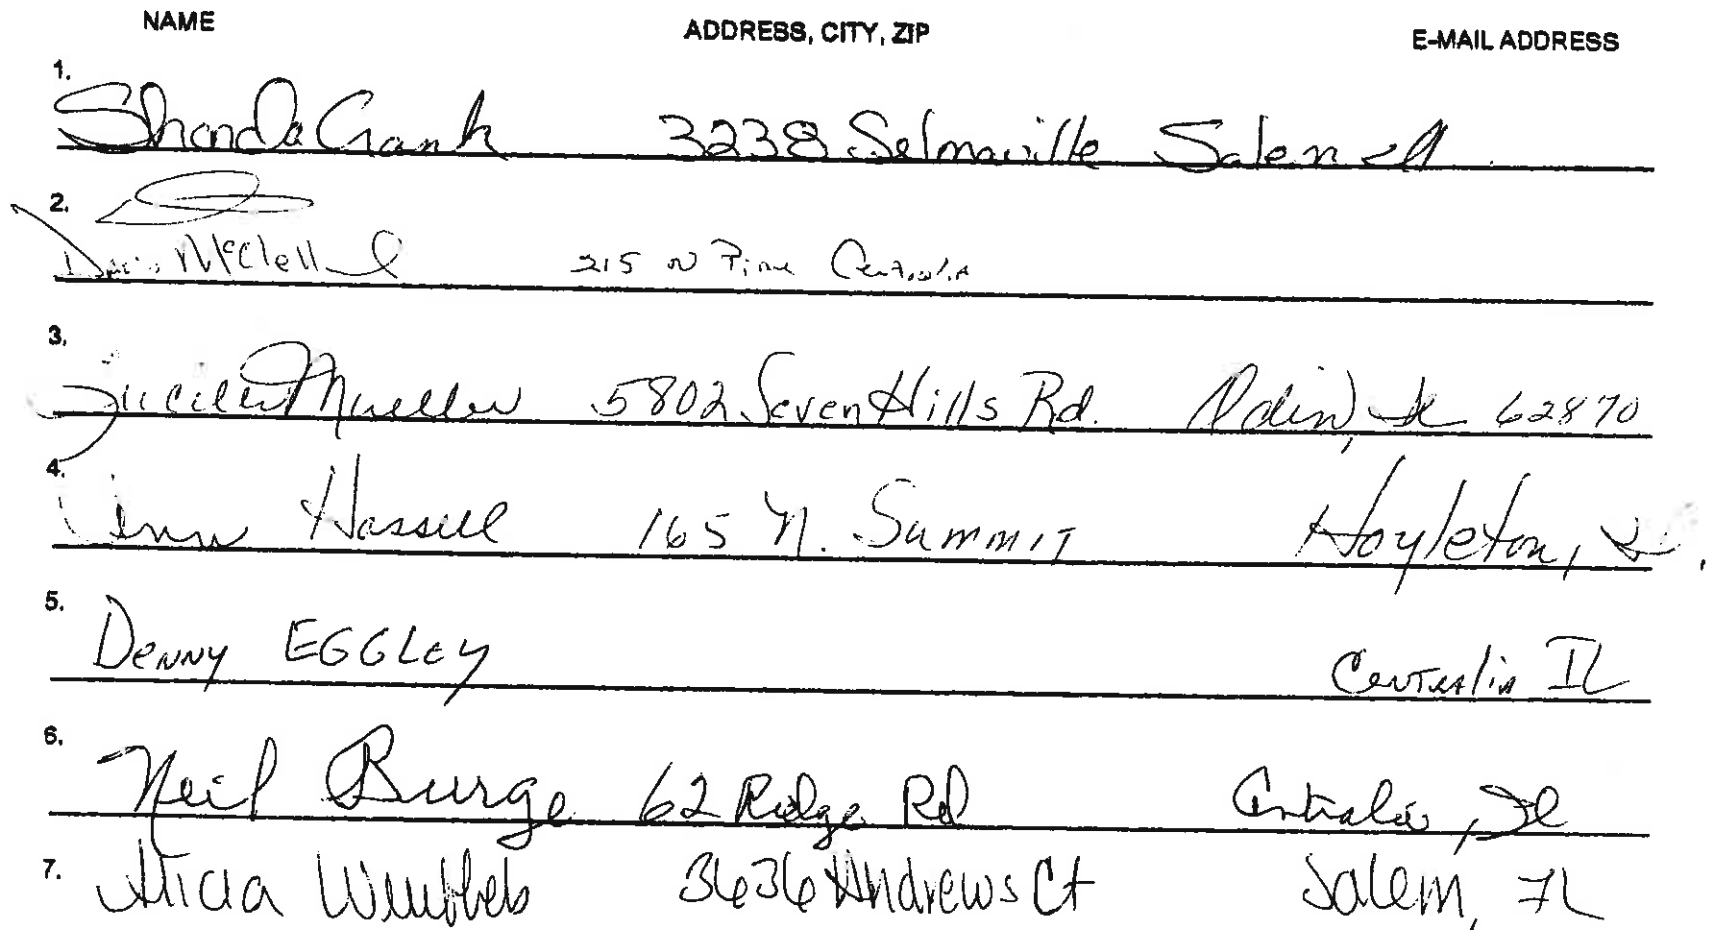 NAME ADDRESS, CITY, ZIP E-MAIL ADDRESS
1. Shonda Crank 3238 Selmaville Salem Il
2. McClell 215 N Pine Centralia
3. Lucille Mueller 5802 Seven Hills Rd. Odin, Il 62870
4. Hassell 165 N. Summit Hoyleton, Il.
5. Denny EGGLEY Centralia IL
6. Neil Burge 62 Ridge Rd Centralia, Il
7. Alicia 3636 Andrews Ct Salem, IL